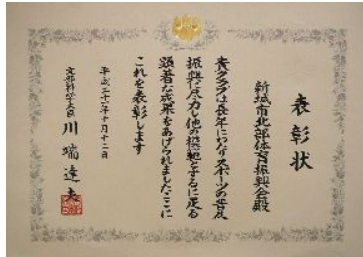 表彰状
新城市北部体育振興会殿
貴クラブは長年にわたりスポーツの普及
振興に尽力し他の模範とするに足る
顕著な成果をあげられましたここに
これを表彰します
平成二十一年十月十二日
文部科学大臣 川端達夫